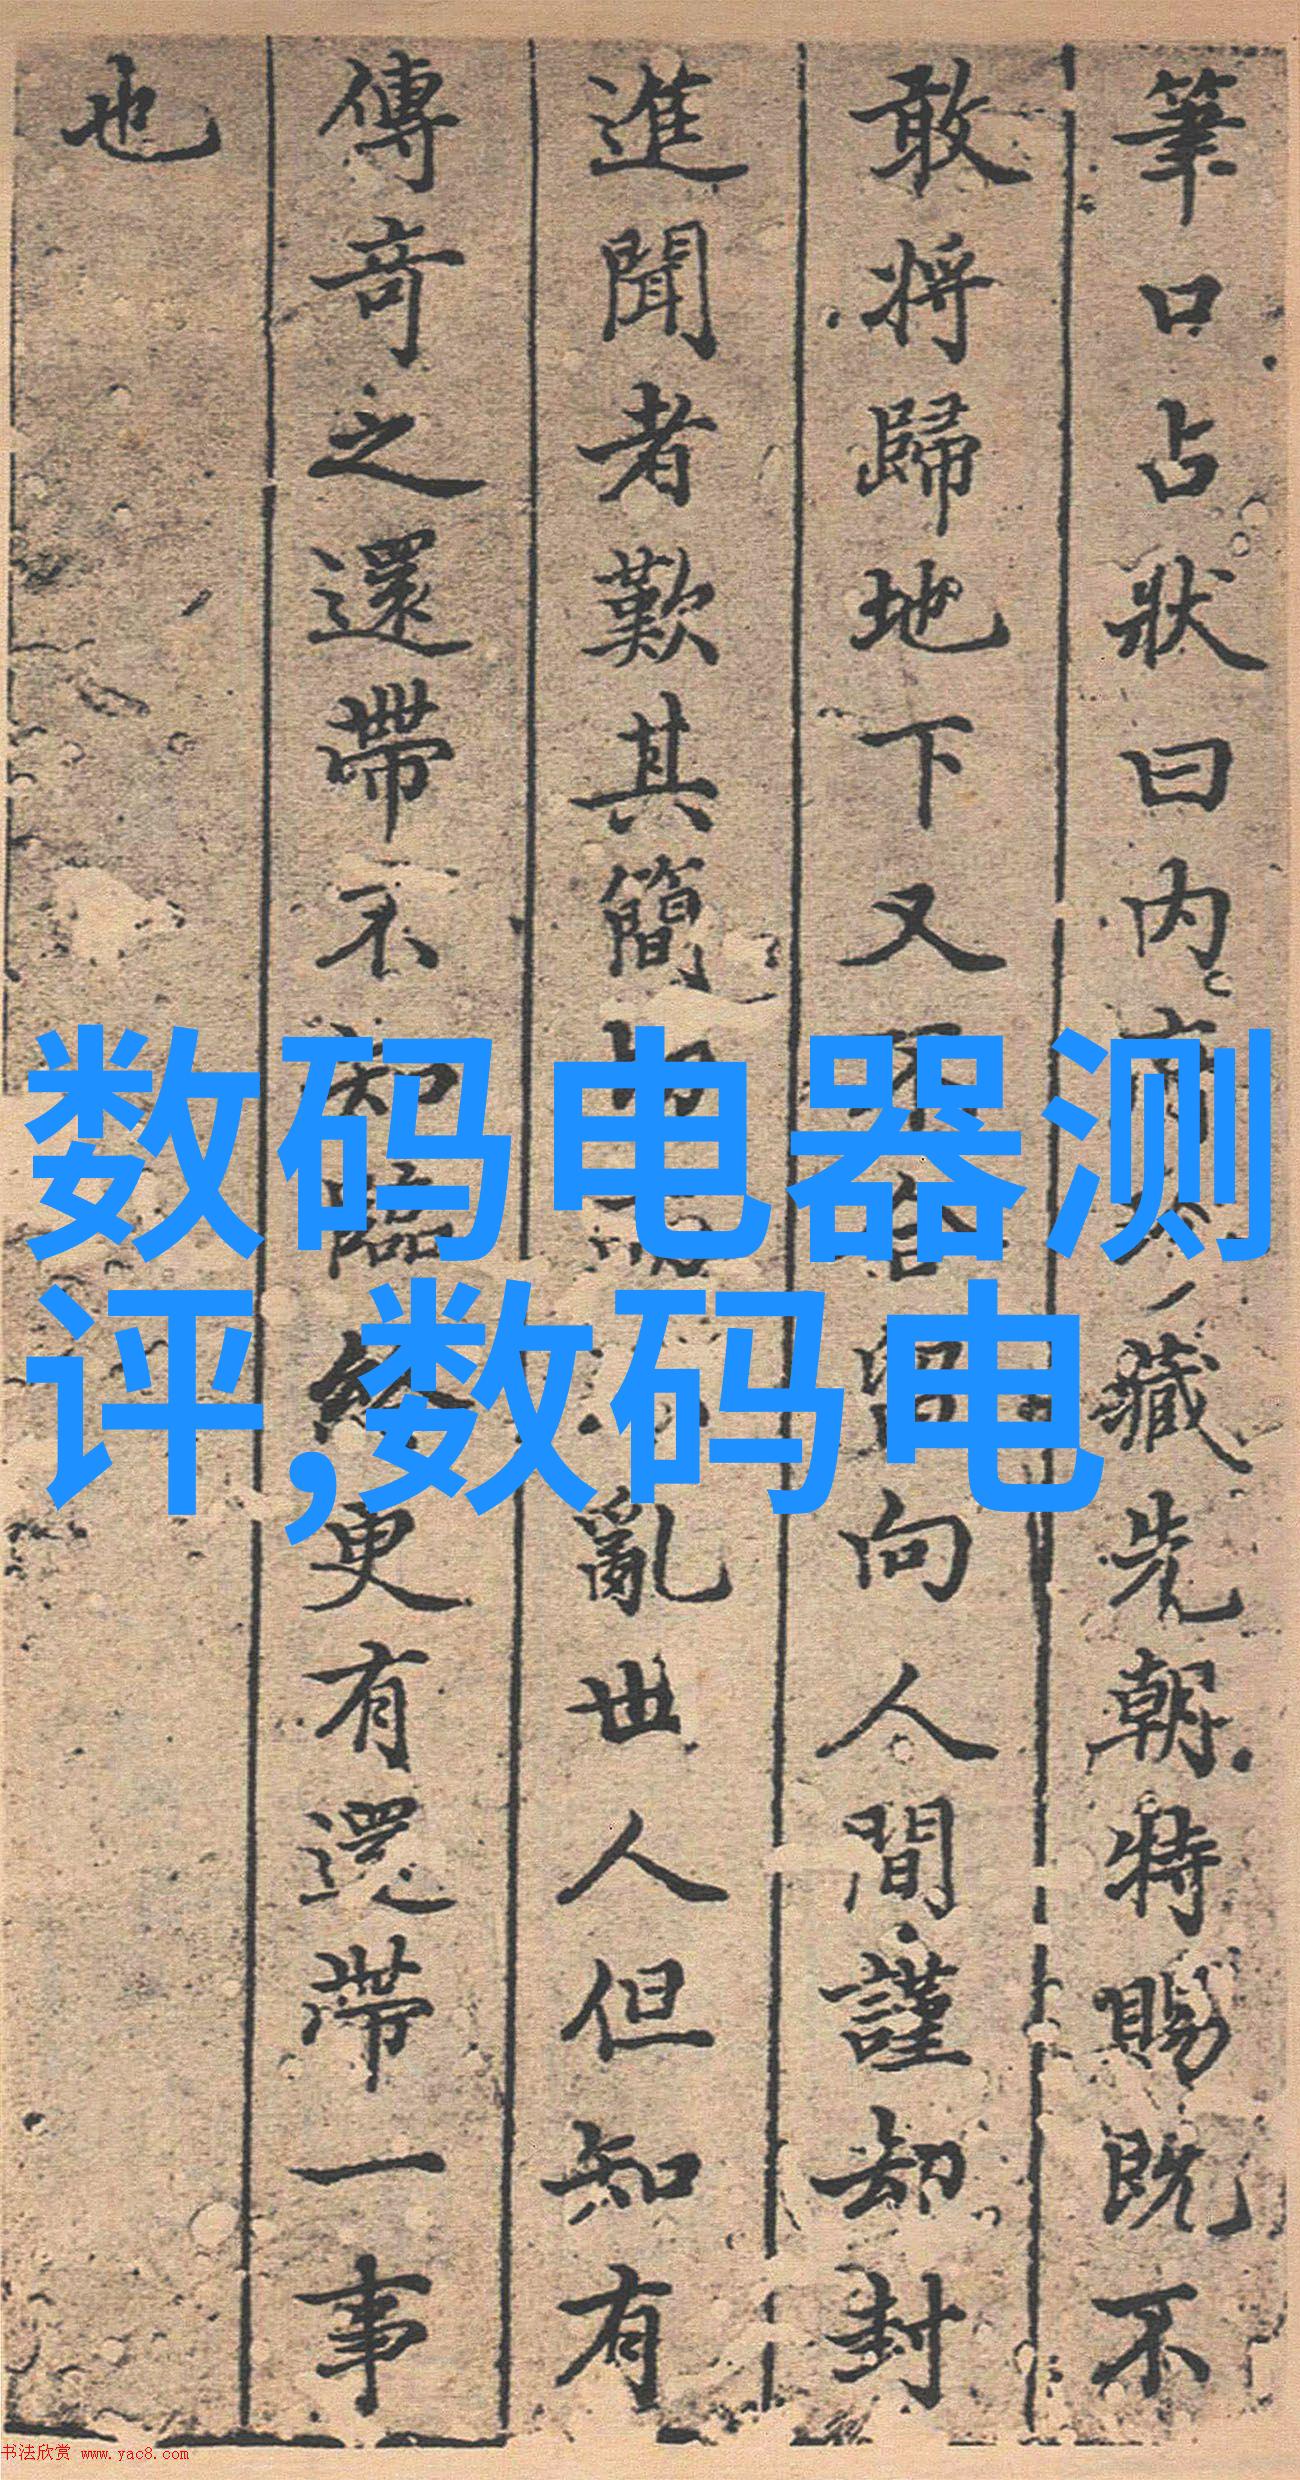 筆口占狀曰内藏先朝特賜既不
敢将歸地下又向人間謹却封
進聞者歎其簡亂世人但知有
傳奇之還帶不知更有還帶一事
也
数码电器测
评,数码电
书法欣赏 www.yac8.com